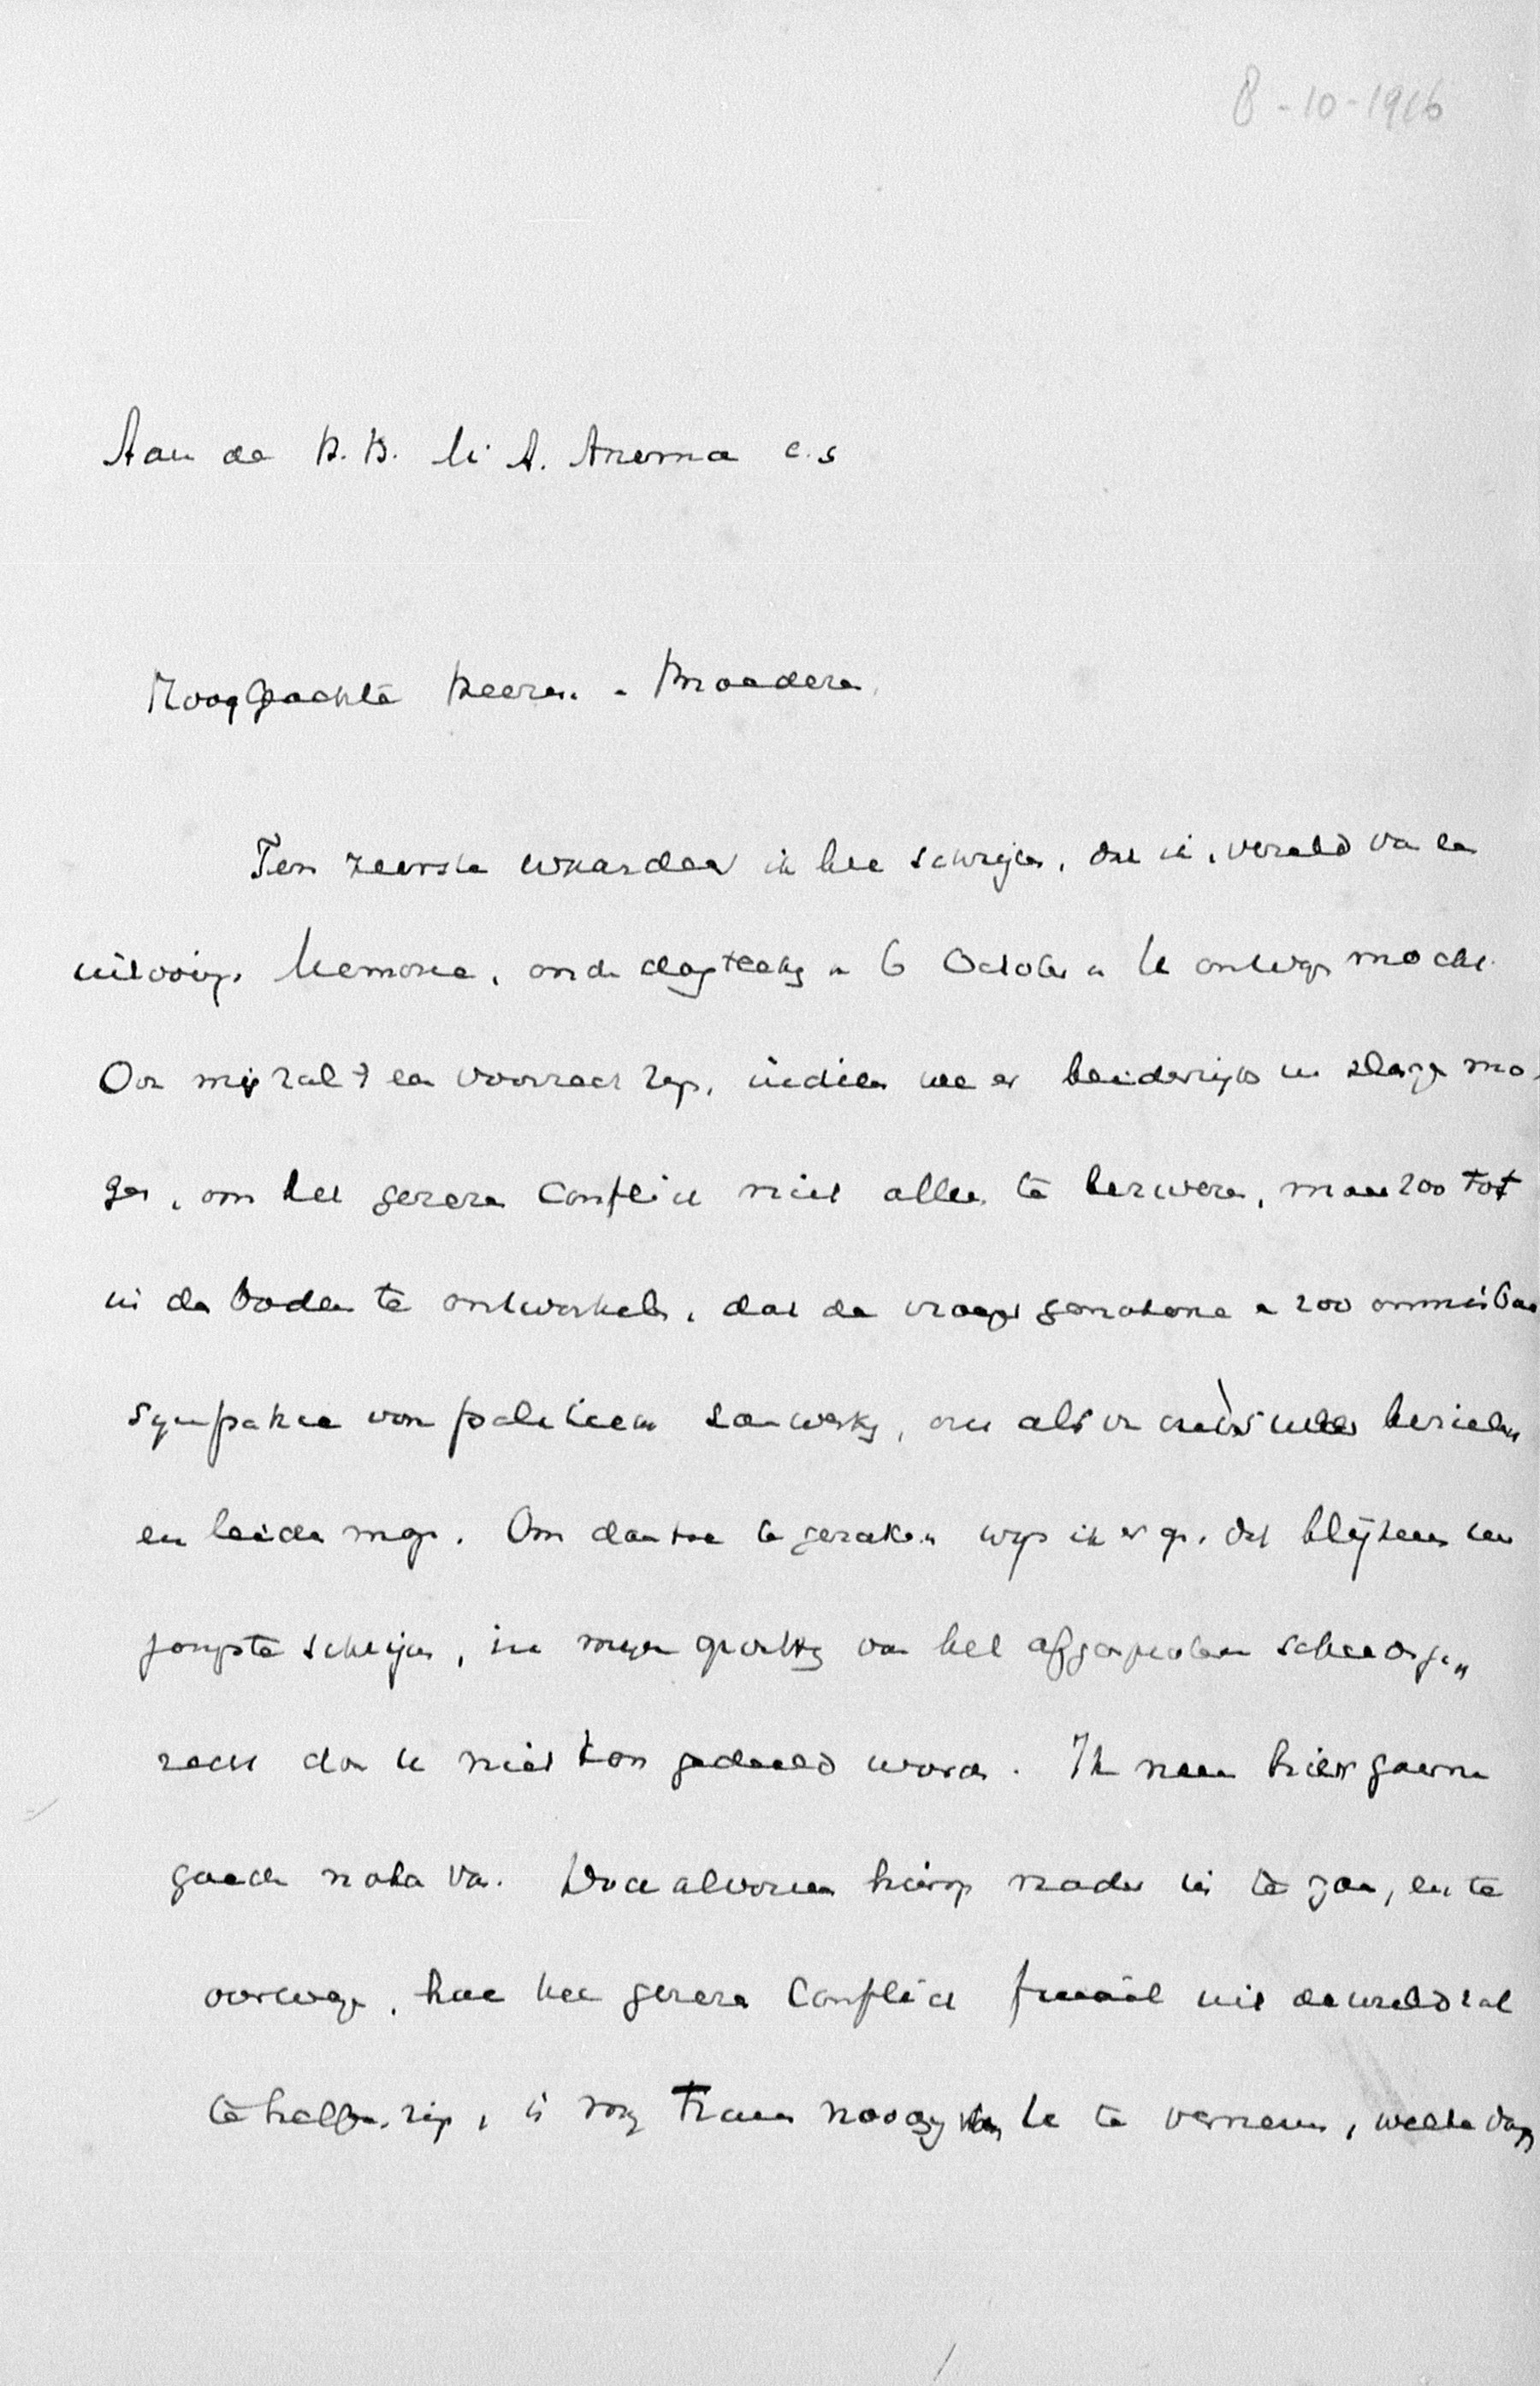 8-10-1916
Aan de H.H. Mr A. Anema c.s
Hooggeachte Heeren en Broeders,
Ten zeerste waardeer ik het schrijven, dat ik, verzeld van een
uitvoerige Memorie, onder dagteekening van 6 October van U ontvangen mocht.
Ook mij zal 't een voorrecht zijn, indien we er beiderzijds in slagen mo-
gen, om het gerezen Conflict niet alleen te bezweren, maar zoo tot
in den bodem te ontwortelen, dat de vroegere zoo onmisbare
sympathie voor politieke samenwerking, ons als van ouds weer bezielen
en leiden moge. Om daartoe te geraken wijs ik er op, dat blijkens uw
jongste schrijven, in mijn opvatting van het afgesproken scheids
recht door U niet kon gedeeld worden. Ik neem hier gaarne
goede nota van. Doch alvorens hierop nader in te gaan, en te
overwegen, hoe het gerezen Conflict finaal uit de wereld zal
te helpen zijn, is mij thans noodig van U te vernemen, welke